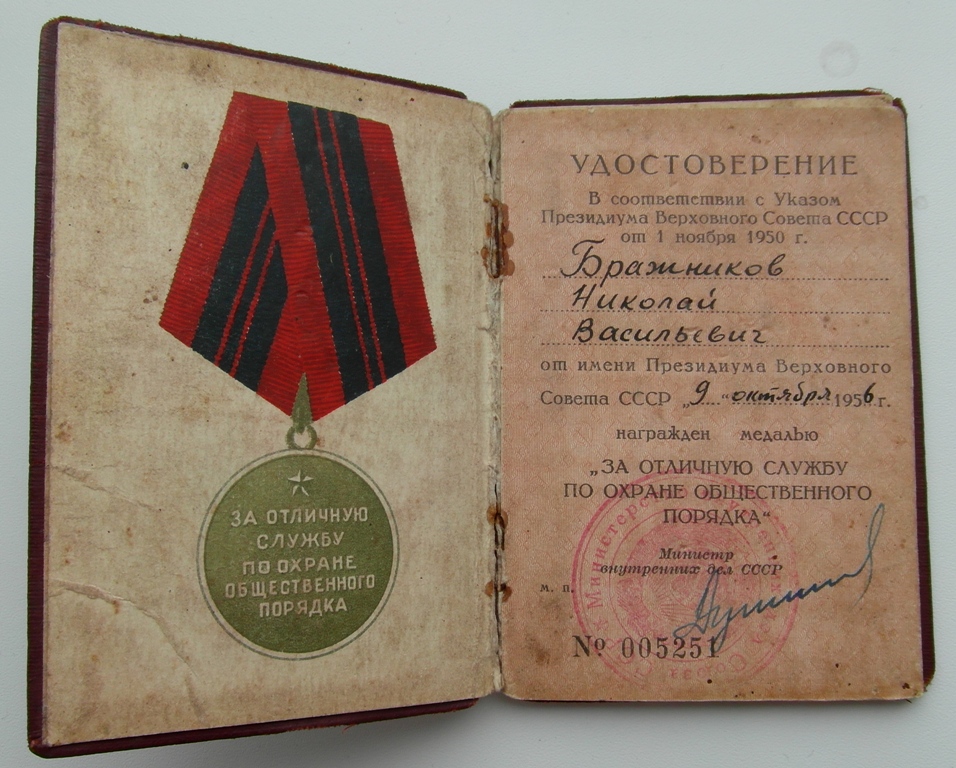 ЗА ОТЛИЧНУЮ
СЛУЖБУ
ПО ОХРАНЕ
ОБЩЕСТВЕННОГО
ПОРЯДКА
УДОСТОВЕРЕНИЕ
В соответствии с Указом
Президиума Верховного Совета СССР
от 1 ноября 1950 г.
Бражников
Николай
Васильевич
от имени Президиума Верховного
Совета СССР „9“ октября 1956 г.
награжден медалью
„ЗА ОТЛИЧНУЮ СЛУЖБУ
ПО ОХРАНЕ ОБЩЕСТВЕННОГО
ПОРЯДКА“
Министр
внутренних дел СССР
м. п.
№ 005251